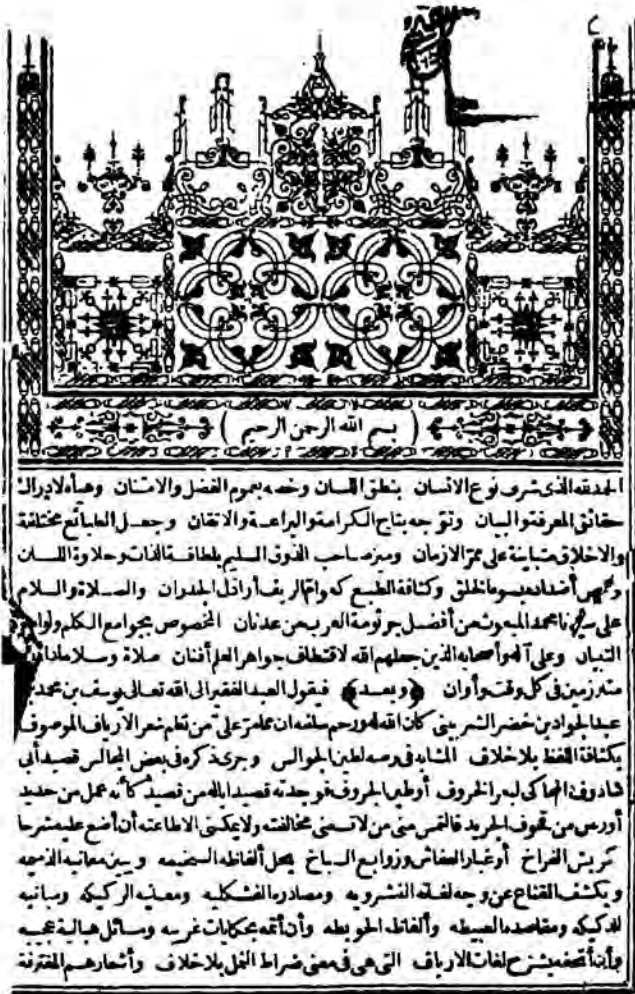 ( بسم الله الرحمن الرحيم )
الحمد لله الذى شرف نوع الانسان بنطق اللسان وخصه بعموم الفضل والامتنان وهيأه لادراك
حقائق المعرفة والبيان وتوجه بتاج الكرامة والبراعة والاتقان وجعل الطبائع مختلفة
والاخلاق متباينة على ممر الازمان وميز صاحب الذوق السليم بلطافة الذات وحلاوة اللسان
وخص أضداده بسوء الخلق وكثافة الطبع كعوام الريف أراذل الجدران والصلاة والسلام
على سيدنا محمد المبعوث من أفضل جرثومة العرب من عدنان المخصوص بجوامع الكلم
التبيان وعلى آله وأصحابه الذين جعلهم الله لاقتطاف جواهر العلم أفنان صلاة وسلاما
متلازمين فى كل وقت وأوان ﴿وبعد﴾ فيقول العبد الفقير الى الله تعالى يوسف بن محمد بن
عبد الجواد بن خضر الشربينى كان الله له ورحم سلفه ان مما مر على من نظم شعر الارياف الموصوف
بكثافة اللفظ بلا خلاف المشابه فى رصه لطين الجوالس وجرى ذكره فى بعض المجالس قصيد أبى
شادوف المحاكى لبعر الخروف أو طين الجروف فوجدته قصيدا ياله من قصيد كأنه عمل من حديد
أو رص من قحوف الجريد فالتمس منى من لا تسعنى مخالفته ولا يمكننى الا طاعته أن أضع عليه شرحا
كريش الفراخ أو غبار العفاش وزوابع السباخ يحل ألفاظه السخيمه ويبين معانيه الذميمه
ويكشف القناع عن وجه لغاته الفشرويه ومصادره الفشكليه ومعانيه الركيكه ومبانيه
الدكيكه ومقاصده العبيطه وألفاظه الحويطه وأن أتمه بحكايات غريبه ومسائل هبالية عجيبه
وأن أتحفه بشرح لغات الارياف التى هى فى معنى ضراط النمل بلا خلاف وأشعارهم المغترفة